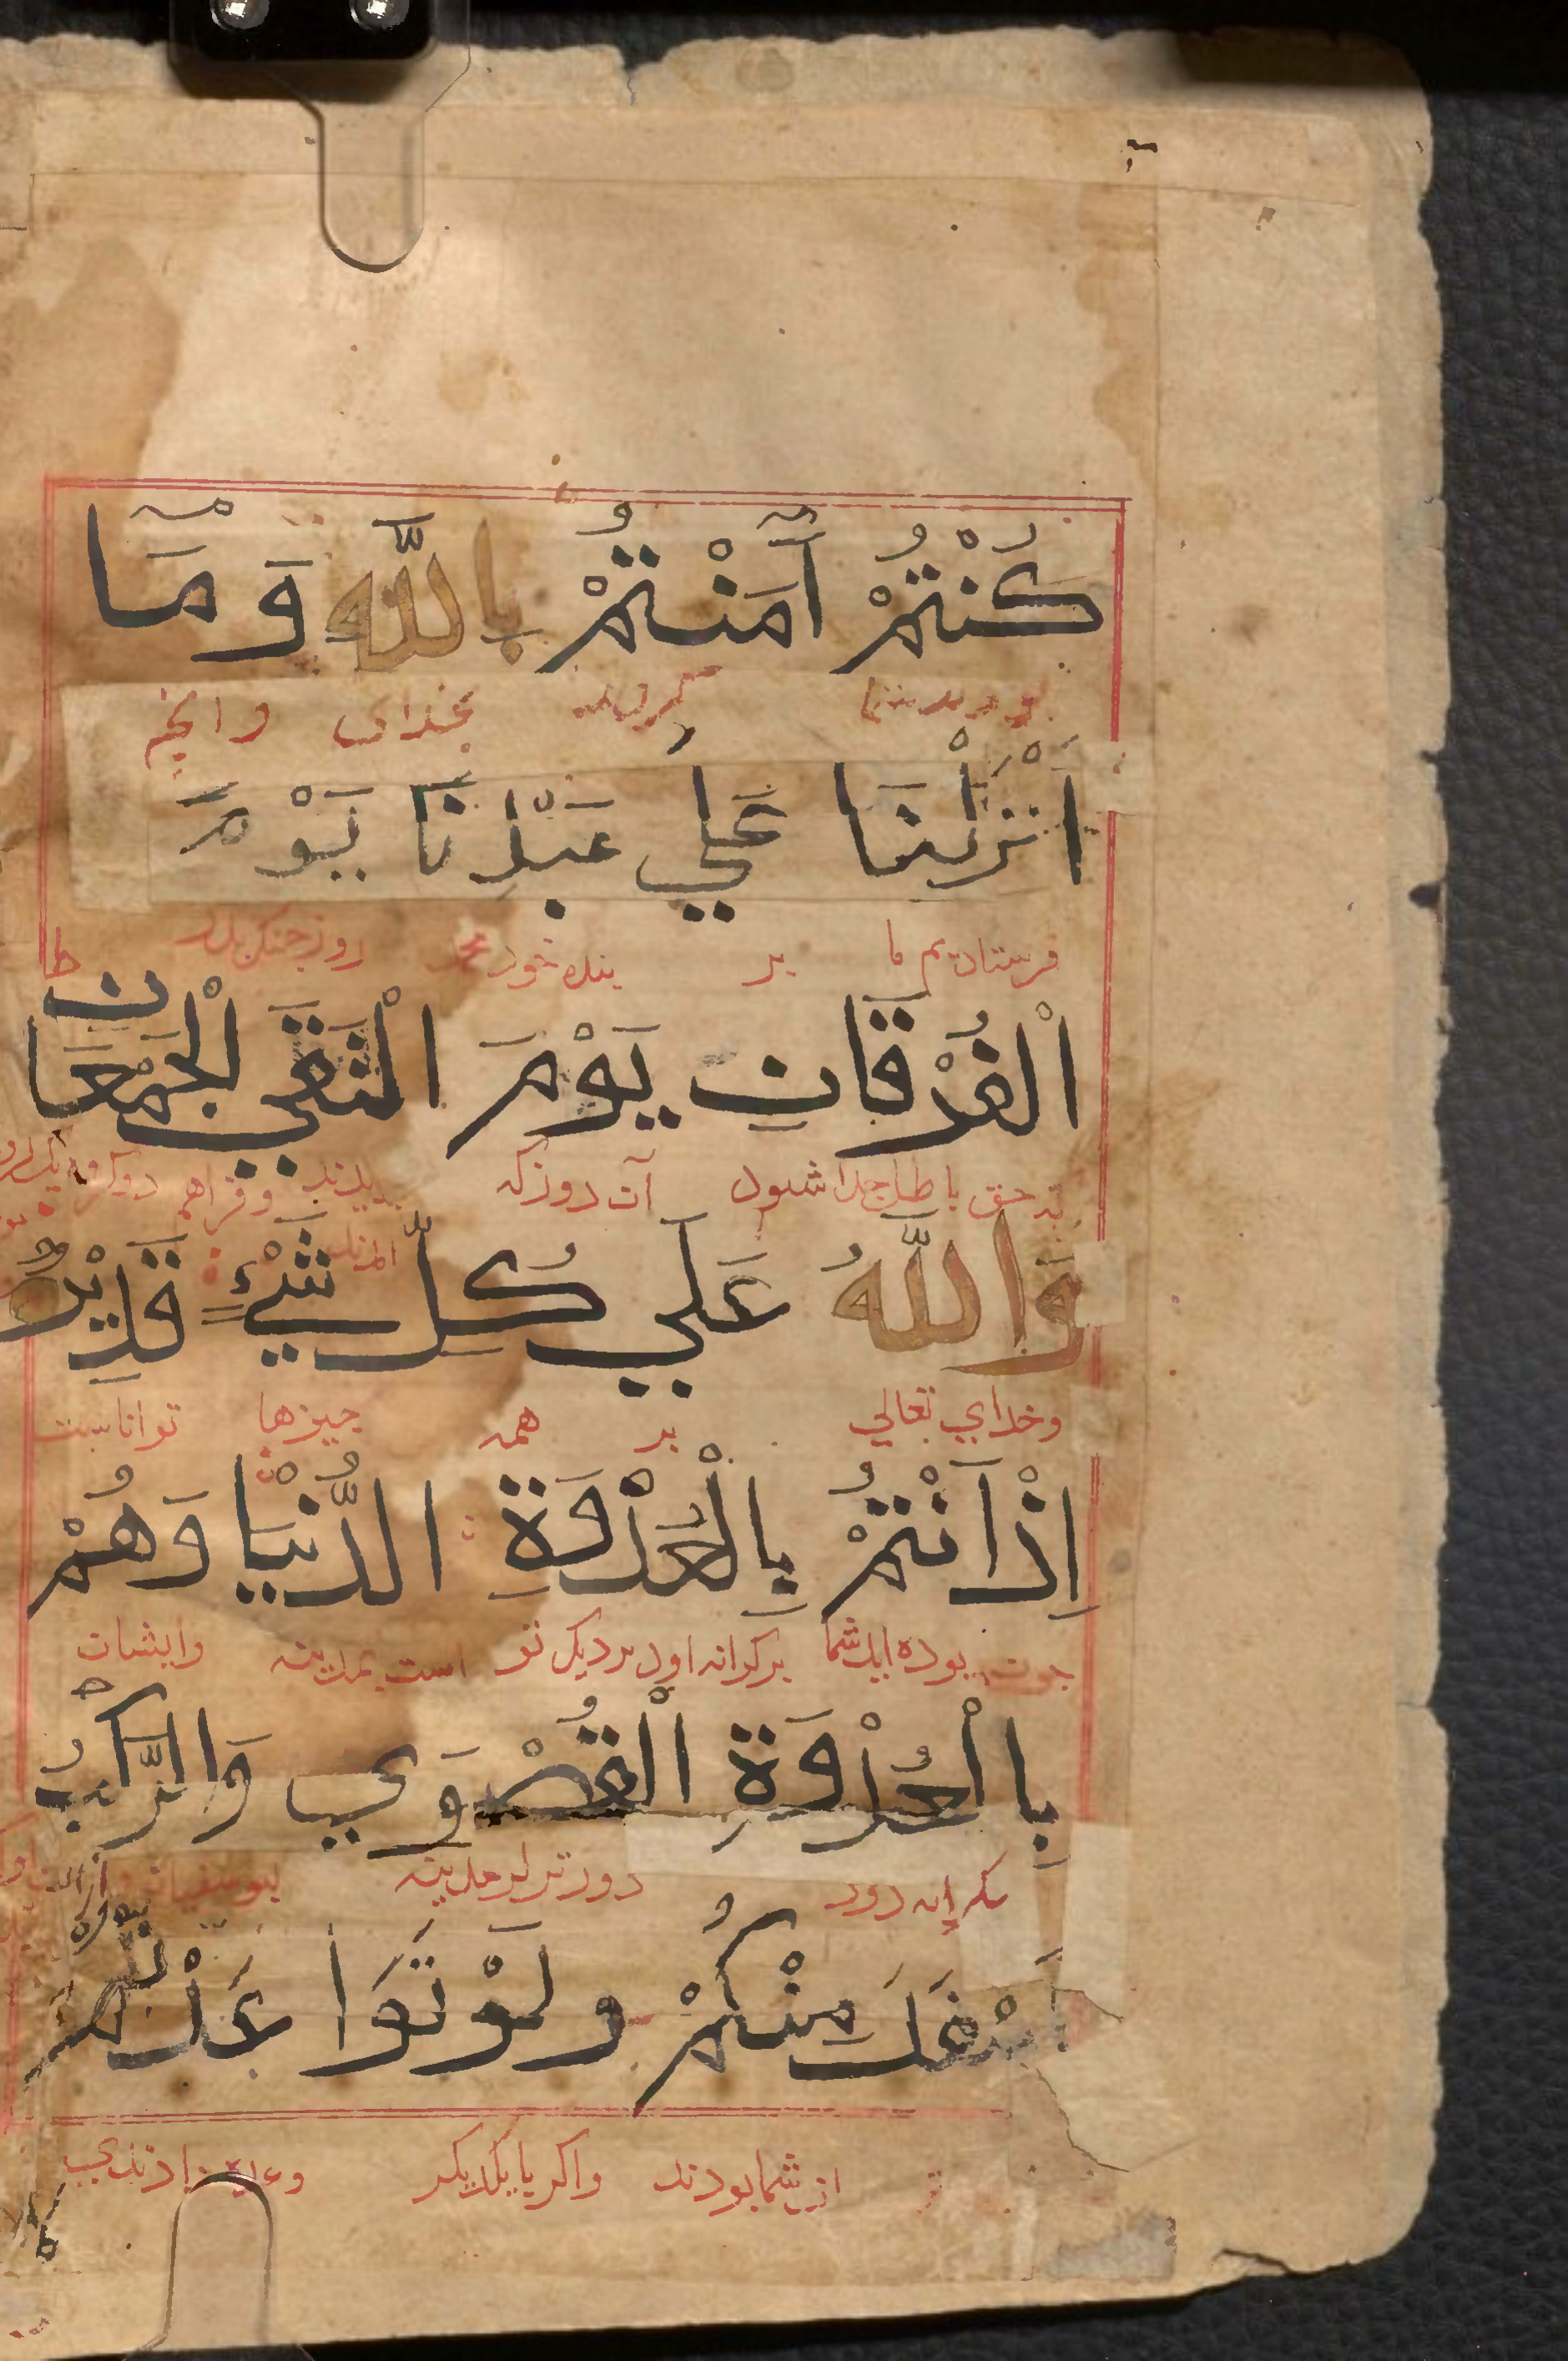 كُنْتُمْ آمَنْتُمْ بِاللَّهِ وَمَآ
بخدای وانچه
اَنْزَلْنَا عَلَي عَبْدِنَا يَوْمَ
فرستادیم ما بر بنده خود محمد روز جنک بدر
الْفُرْقَانِ يَوْمَ الْتَقَي الْجَمْعَانِ ط
حق باطل جدا شود آن روز که وفراهم دو کروه
وَاللَّهُ عَلَي كُلِّ شَيْءٍ قَدِيْرٌ
وخدای تعالی بر همه چیزها تواناست
اِذْ اَنْتُمْ بِالْعُدْوَةِ الدُّنْيَا وَهُمْ
چون بوده اید شما برکرانه است بمدینه وایشان
بِالْعُدْوَةِ الْقُصْوَي وَالرَّكْبُ
دور دورتر مدینه
اَسْفَلَ مِنْكُمْ وَلَوْ تَوَا عَدْتُمْ
از شما بودند واکر با یکدیکر